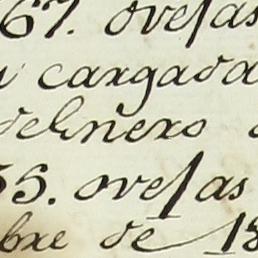 67. ovejas
cargada
de Enero
35. ovejas
bre de 18